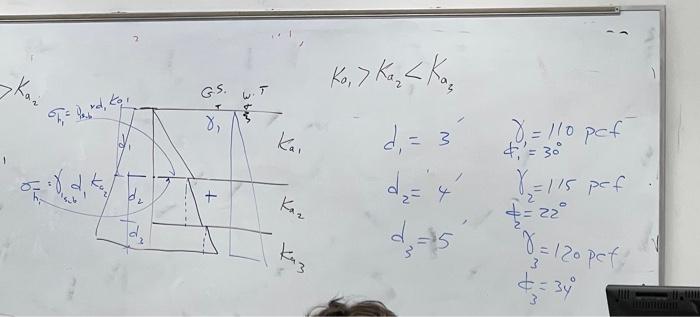 > Ka₂
G.S.
W.T
σh₁ = γsub d₁ Ka₁
σh₁ = γ₁sub d₁ Ka₂
d₁
d₂
d₃
γ₁
+
Ka₁
Ka₂
Ka₃
Ka₁ > Ka₂ < Ka₃
d₁ = 3'
d₂ = 4'
d₃ = 5'
γ₁ = 110 pcf
ϕ₁ = 30°
γ₂ = 115 pcf
ϕ₂ = 22°
γ₃ = 120 pcf
ϕ₃ = 34°